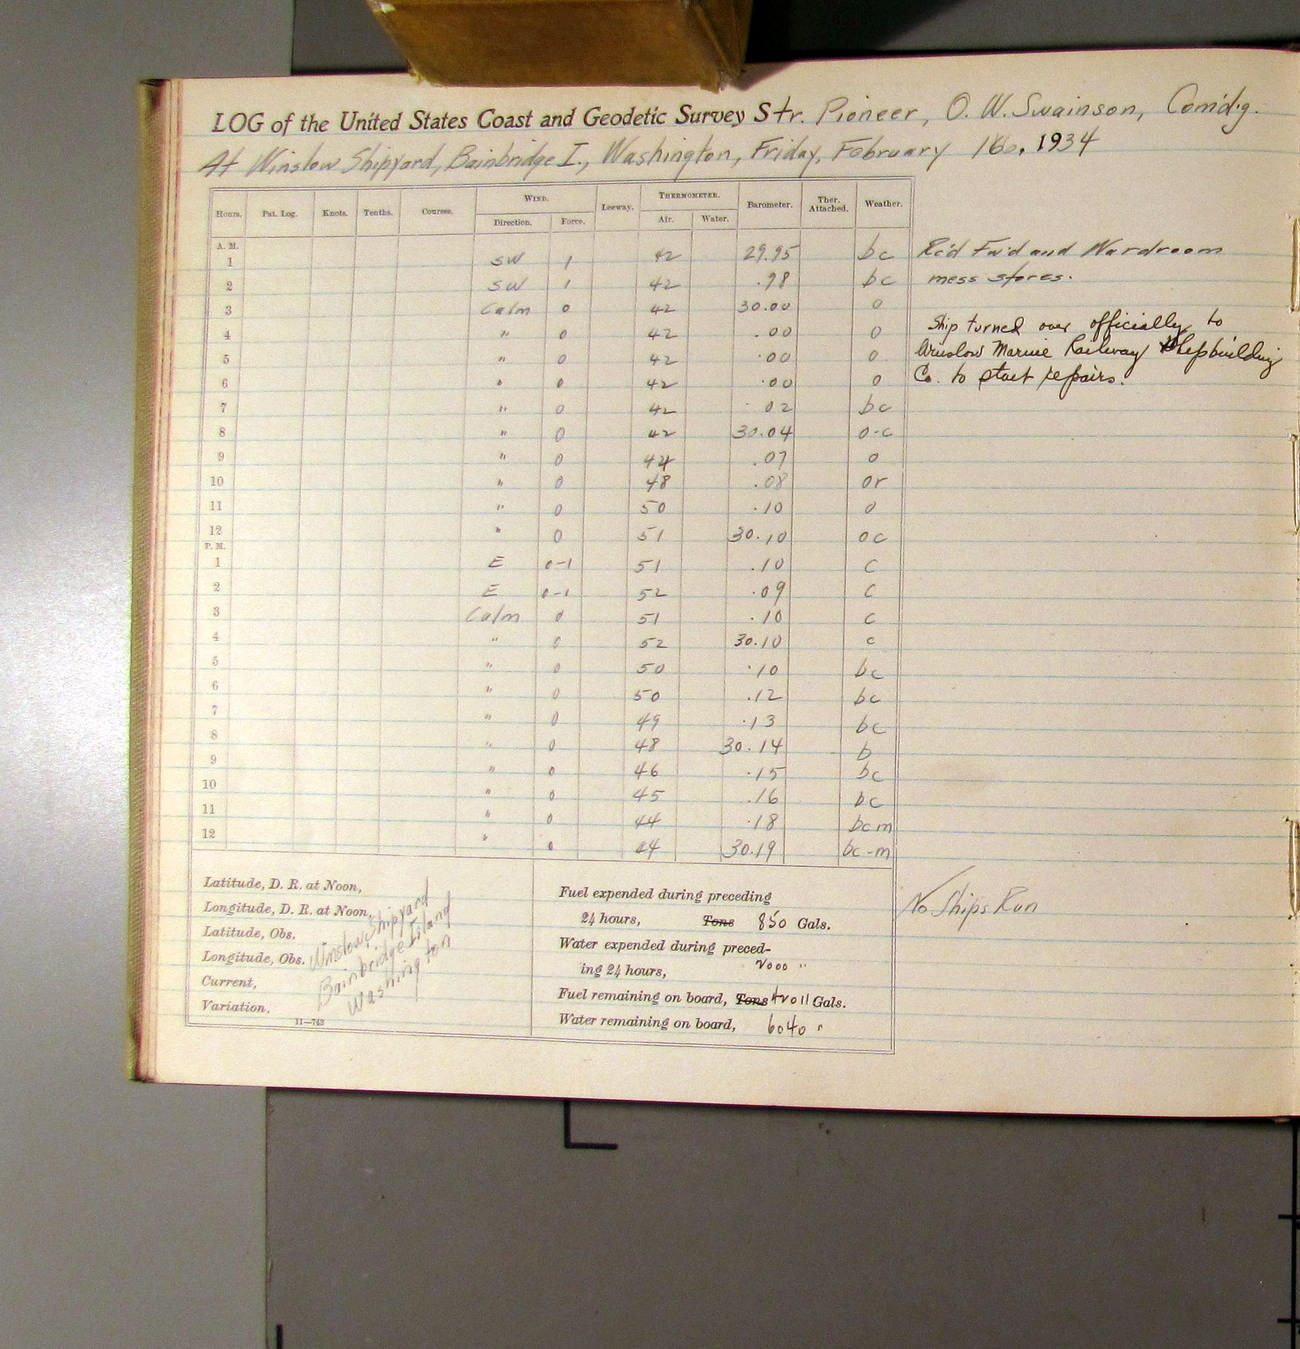 LOG of the United States Coast and Geodetic Survey Str. Pioneer, O. W. Swainson, Comd'g.
At Winslow Shipyard, Bainbridge I., Washington, Friday, February 16, 1934
Hours. Pat. Log. Knots. Tenths. Courses. WIND. Direction. Force. Leeway. THERMOMETER. Air. Water. Barometer. Ther. Attached. Weather.
A. M.
1 SW 1 42 29.95 bc Rec'd Fw'd and Wardroom
2 SW 1 42 .98 bc mess stores.
3 Calm 0 42 30.00 o
4 " 0 42 .00 o Ship turned over officially to
5 " 0 42 .00 o Winslow Marine Railway Shipbuilding
6 " 0 42 .00 o Co. to start repairs.
7 " 0 42 .02 bc
8 " 0 42 30.04 o-c
9 " 0 44 .07 o
10 " 0 48 .08 or
11 " 0 50 .10 o
12 " 0 51 30.10 oc
P. M.
1 E 0-1 51 .10 c
2 E 0-1 52 .09 c
3 Calm 0 51 .10 c
4 " 0 52 30.10 c
5 " 0 50 .10 bc
6 " 0 50 .12 bc
7 " 0 49 .13 bc
8 " 0 48 30.14 b
9 " 0 46 .15 bc
10 " 0 45 .16 bc
11 " 0 44 .18 bcm
12 " 0 44 30.19 bc-m
Latitude, D. R. at Noon,
Longitude, D. R. at Noon,
Latitude, Obs.
Longitude, Obs.
Current,
Variation,
Winslow Shipyard
Bainbridge Island
Washington
11—743
Fuel expended during preceding
24 hours, Tons 850 Gals.
Water expended during preced-
ing 24 hours, 2000 "
Fuel remaining on board, Tons Gals.
Water remaining on board, 6040 "
No Ships Run